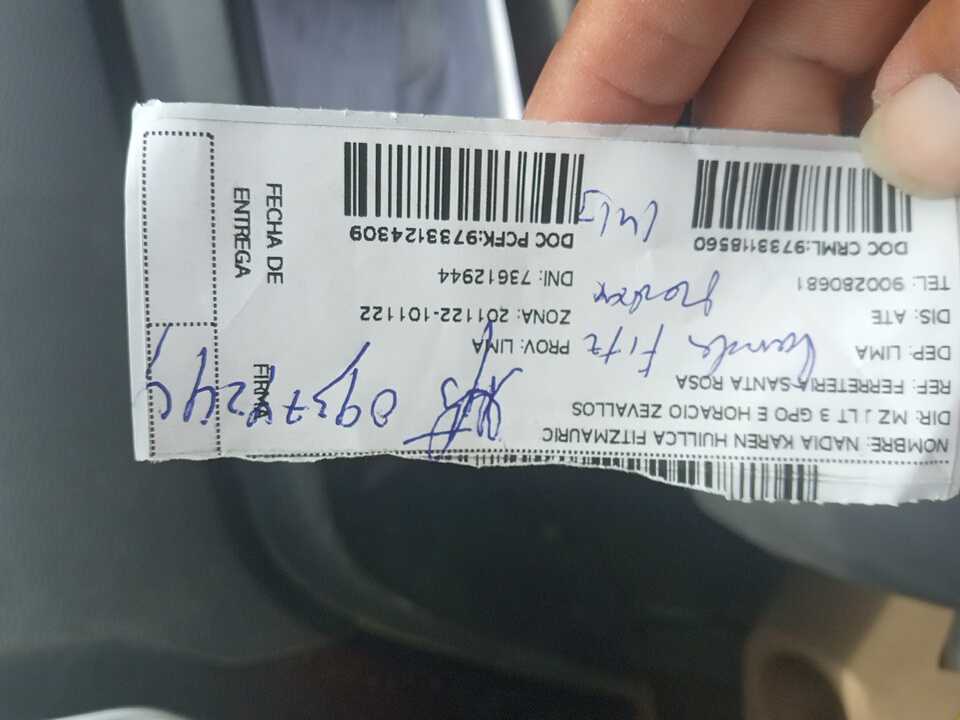 NOMBRE: NADIA KAREN HUILLCA FITZMAURIC
DIR: MZ J LT 3 GPO E HORACIO ZEVALLOS
REF: FERRETERIA SANTA ROSA
DEP: LIMA PROV: LIMA
DIS: ATE ZONA: 201122-101122
TEL: 900280681 DNI: 73612944
DOC CRML:9733118560 DOC PCFK:9733124309
FECHA DE
ENTREGA
FIRMA
Fitz